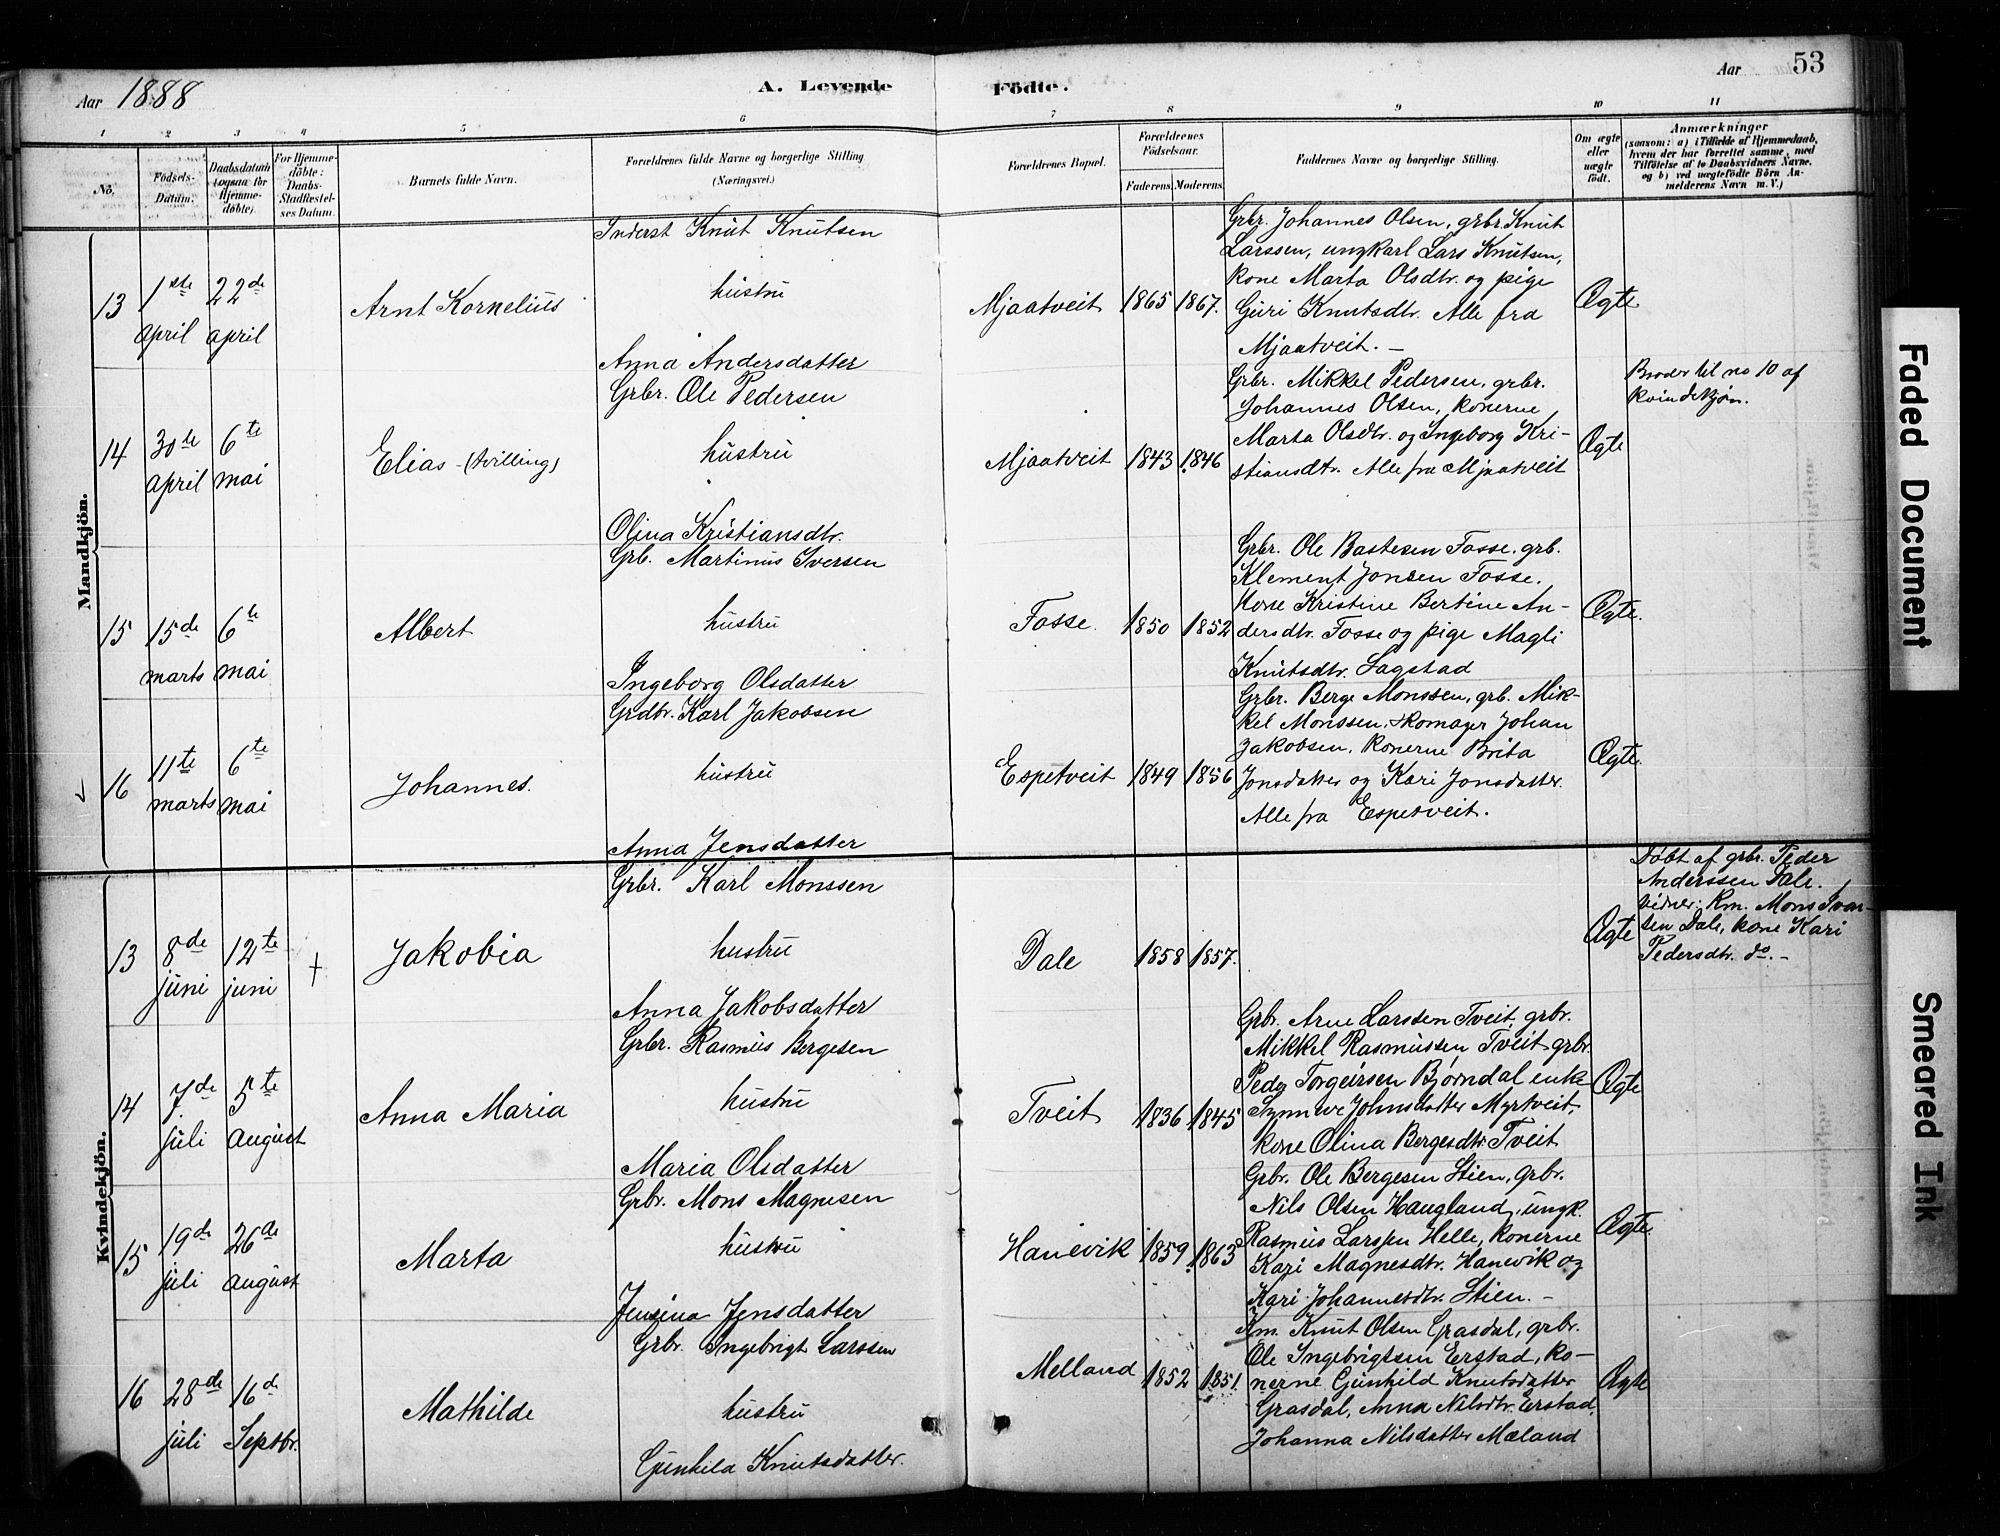 Aar 1888
A. Levende Födte.
Aar 53
1 2 3 4 5 6 7 8 9 10 11
No.
Födsels-Datum.
Daabsdatum (ogsaa for Hjemme-döbte).
For Hjemme-döbte: Daabs-Stadfæstel-ses Datum.
Barnets fulde Navn.
Forældrenes fulde Navne og borgerlige Stilling (Næringsvei.)
Forældrenes Bopæl.
Forældrenes Födselsaar.
Faderens. Moderens.
Faddernes Navne og borgerlige Stilling.
Om ægte eller uægte födt.
Anmærkninger
(saasom: a) i Tilfælde af Hjemmedaab, hvem der har forrettet samme, med Tilföielse af to Daabsvidners Navne, og b) ved uægtefödte Börn An-melderens Navn m. V.)
Mandkjön.
13
1ste april
22de april
Arnt Kornelius
Inderst Knut Knutsen
hustru
Anna Andersdatter
Mjaatveit
1865
1867.
Grbr. Johannes Olsen, grbr. Knut
Larssen, ungkarl Lars Knutsen,
kone Marta Olsdtr. og pige
Guri Knutsdtr. Alle fra
Mjaatveit. —
Ægte
14
30te april
6te mai
Elias - (tvilling)
Grbr. Ole Pedersen
hustru
Olina Kristiansdtr.
Mjaatveit
1843
1846
Grbr. Mikkel Pedersen, grbr.
Johannes Olsen, konerne
Marta Olsdtr. og Ingeborg Kri-
stiansdtr. Alle fra Mjaatveit
Ægte
Broder til no 10 af
kvindekjøn.
15
15de marts
6te mai
Albert
Grb. Martinus Iversen
hustru
Ingeborg Olsdatter
Fosse.
1850
1852
Grbr. Ole Bastesen Fosse. grb.
Klement Jonsen Fosse.
Kone Kristine Bertine An-
dersdtr. Fosse og pige Magli
Knutsdtr. Sagstad
Ægte.
16
11te marts
6te mai
Johannes.
Grdbr. Karl Jakobsen
hustru
Anna Jensdatter
Espetveit
1849
1856
Grbr. Berge Monssen, grb. Mik-
kel Monssen, skomager Johan
Jakobsen, konerne Brita
Jonsdatter og Kari Jonsdatter.
Alle fra Espetveit.
Ægte.
Kvindekjön.
13
8de juni
12te juni
†
Jakobia
Grbr. Karl Monssen
hustru
Anna Jakobsdatter
Dale
1858
1857.
Ægte
Døbt af grbr. Peder
Anderssen Dale.
Vidner: Km. Mons Ivar-
sen Dale, kone Kari
Pedersdtr. do. —
14
7de juli
5te august
Anna Maria
Grbr. Rasmus Bergesen
hustru
Maria Olsdatter
Tveit
1836
1845
Grbr. Arne Larssen Tveit, grbr.
Mikkel Rasmussen Tveit grbr.
Peder Torgeirsen Bjørndal enke
Synneve Johnsdatter Myrtveit,
kone Olina Bergesdtr. Tveit
Ægte
15
19de juli
26de august
Marta
Grbr. Mons Magnesen
hustru
Jensina Jensdatter
Hanevik
1859
1863
Grbr. Ole Bergesen Stien, grbr.
Nils Olsen Haugland, ungk.
Rasmus Larssen Helle, konerne
Kari Magnesdtr. Hanevik og
Kari Johannesdtr. Stien. —
Ægte.
16
28de juli
16d Septbr.
Mathilde
Grbr. Ingebrigt Larssen
hustru
Gunhild Knutsdatter.
Melland
1852
1851.
Km. Knut Olsen Grasdal, grbr.
Ole Ingebrigtsen Erstad, ko-
nerne Gunhild Knutsdatter
Grasdal, Anna Nilsdtr. Erstad,
Johanna Nilsdatter Mæland
Ægte
Faded Document
Smeared Ink